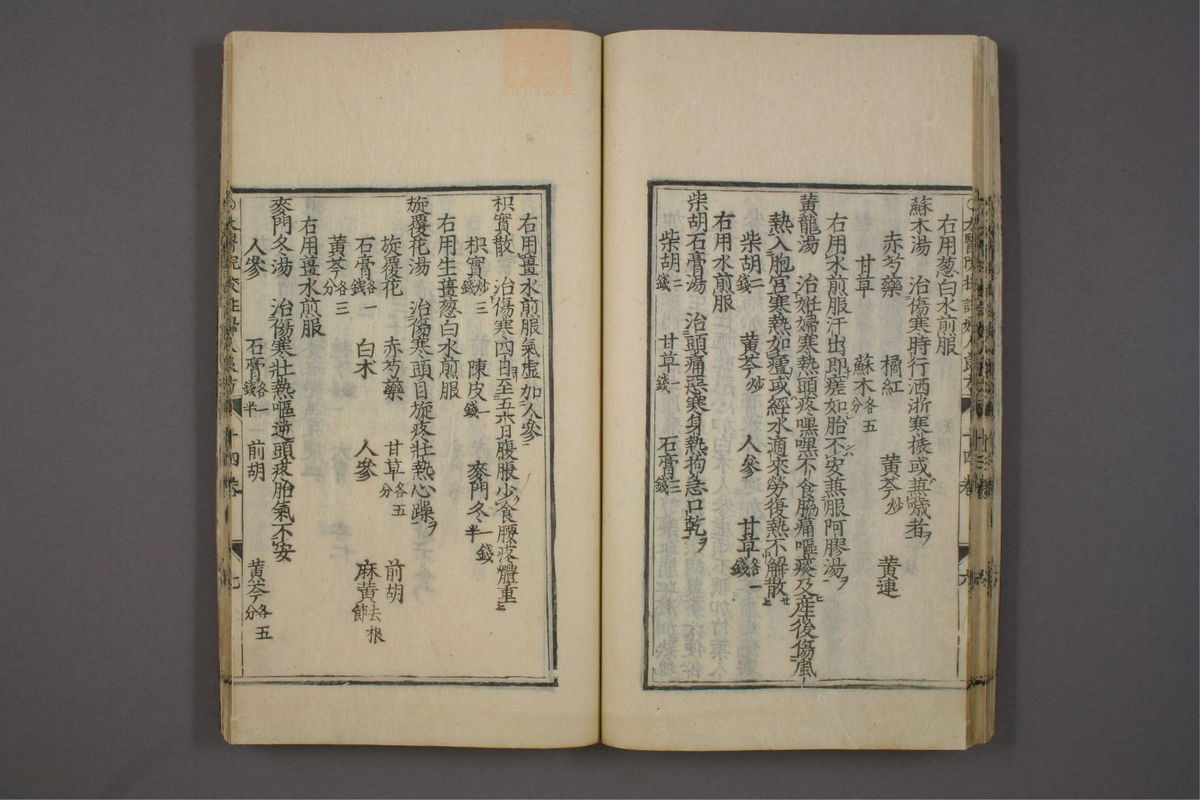 右用葱白水煎服
蘇木湯 治傷寒時行洒浙寒㨾或無噦者ヲ
赤芍藥 橘紅 黄芩炒 黄連
甘草 蘇木各五分
右用水煎服汗出即瘥如胎不安兼服阿膠湯ヲ
黄龍湯 治姙婦寒熱頭疼嘿嘿不食脇痛嘔痰及産後傷風
熱入胞宫寒熱如瘧或經水適來勞復熱不解散
柴胡二錢 黄芩炒 人參 甘草各一錢
右用水煎服
柴胡石膏湯 治頭痛惡寒身熱拘急口乾ヲ
柴胡二錢 甘草一錢 石膏三錢
右用薑水煎服氣虚加人參
枳實散 治傷寒四日至五六日腹脹少食腰疼體重
枳實炒三錢 陳皮一錢 麥門冬一錢半
右用生薑葱白水煎服
旋覆花湯 治傷寒頭目旋疼壯熱心躁ヲ
旋覆花 赤芍藥 甘草各五分 前胡
石膏各一錢 白术 人參 麻黄去根節
黄芩各三分
右用薑水煎服
麥門冬湯 治傷寒壯熱嘔逆頭疼胎氣不安
人參 石膏各一錢半 前胡 黄芩各五分
十四卷 七